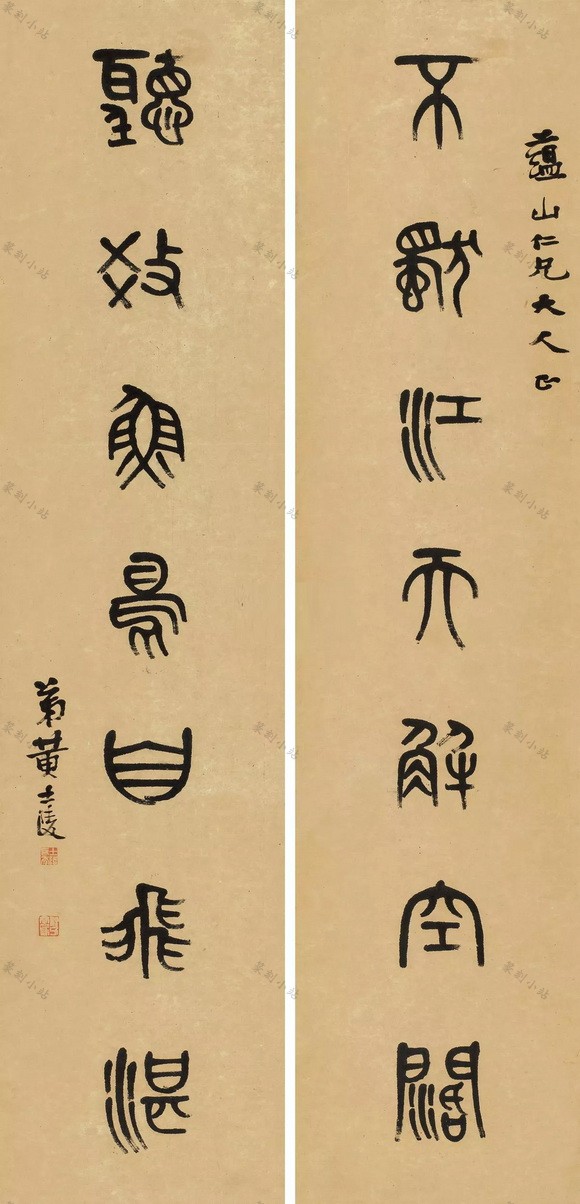 蘊山仁兄大人正
不獨江天解空闊
聽教魚鳥自飛湛
弟黃士陵
篆刻小站